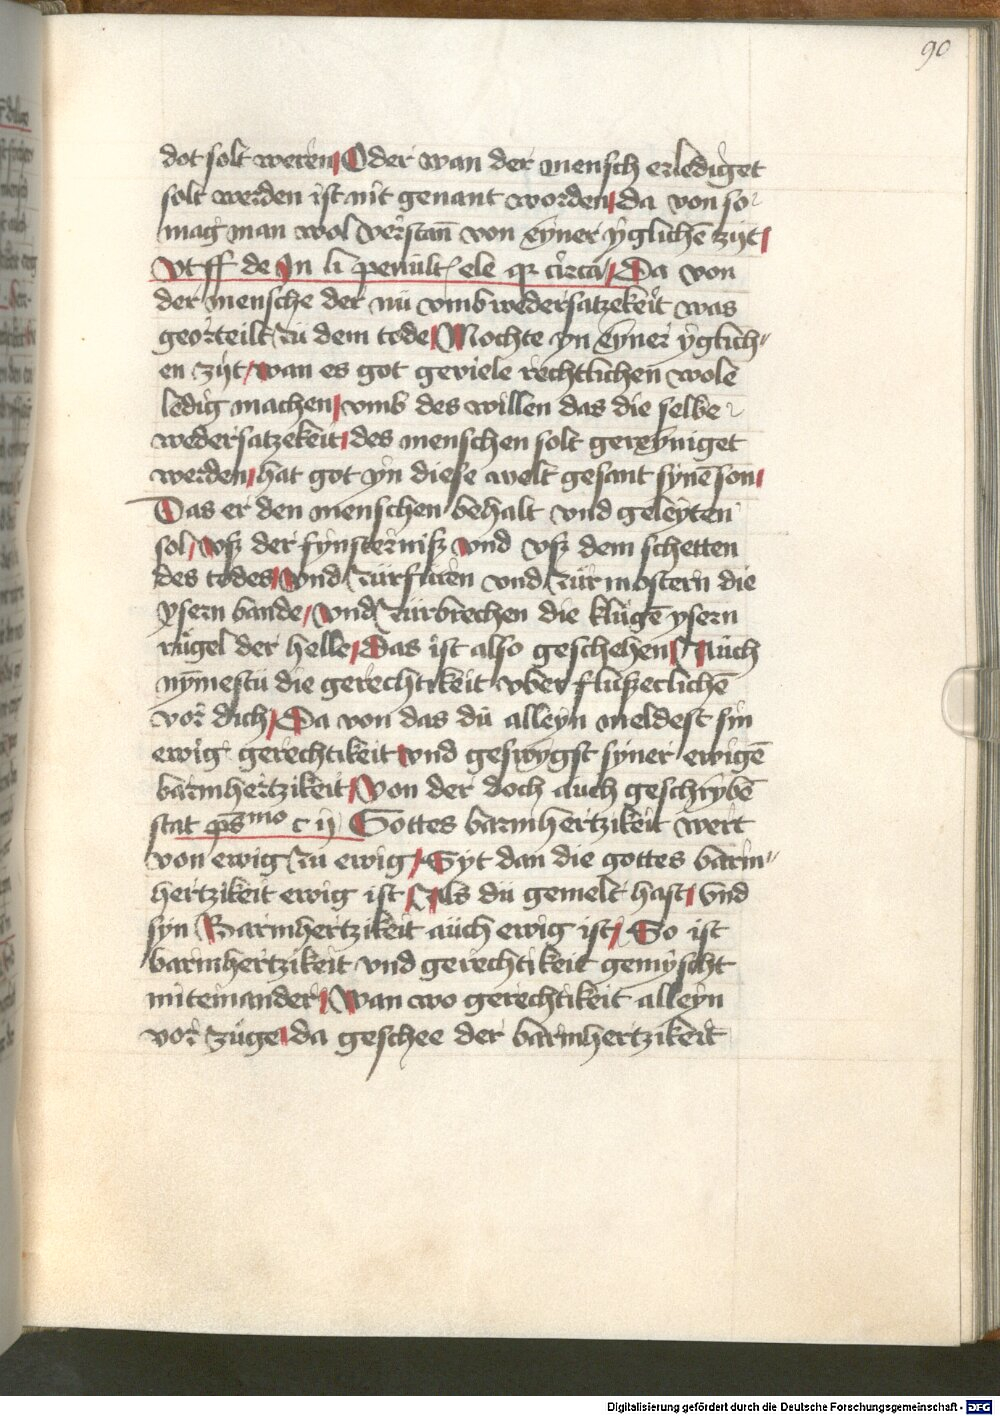 90
dot solt weren / Oder wan der mensch erlediget
solt werden ist nit genant worden / da von so
mag man wol verstan̄ von eyner yglichē zijt /
Vt ff de In li penult ele qr circa / Da von
der mensche der nü vmb wedersatzekeit was
georteilt zü dem tode / Mochte yn eyner yglich
en zijt / wan es got geviele rechtlichen wole
ledig machen / vmb des willen das die selbe
wedersatzekeit / des menschen solt gereyniget
werden / hat got yn diese welt gesant synē son /
Das er den menschen behalt vnd geleyten
sol / vsz der fynsternisz vnd vsz dem schetten
des todes / Vnd zürfüren vnd zür mostern die
ysern bande / vnd zürbrechen die klügē ysern
rügel der helle / Das ist also geschehen / Auch
nymestü die gerechtikeit vberflüszeclichē
vor dich / Da von das dü alleyn meldest sin
ewig gerechtikeit vnd geswygst syner ewigē
barmhertzikeit / Von der doch auch geschrybē
stat ps̄mo c ij Gottes barmhertzikeit wert
von ewig zu ewig / Syt dan die gottes barm
hertzikeit ewig ist / Als du gemelt hast / Vnd
syn Barmhertzikeit aüch ewig ist / So ist
barmhertzikeit vnd gerechtikeit gemyscht
miteinander / Wan wo gerechtikeit alleyn
vor züge / da geschee der barmhertzikeit
Digitalisierung gefördert durch die Deutsche Forschungsgemeinschaft - DFG